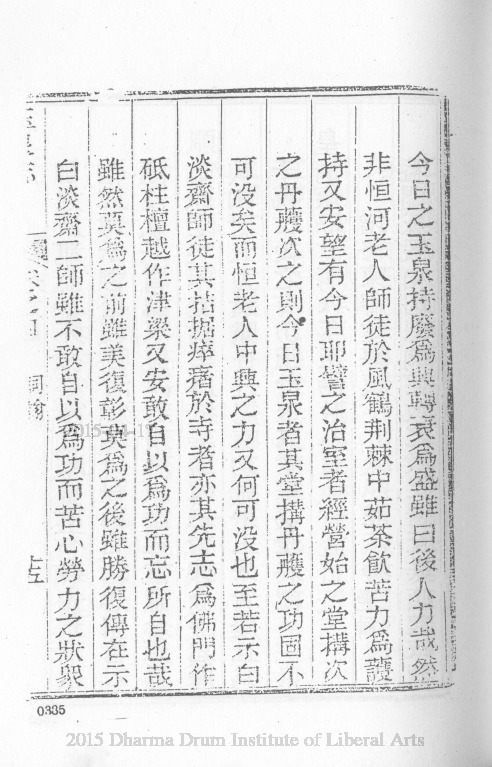 今日之玉泉持廢為興轉衰為盛雖曰後人力哉然
非恒河老人師徒於風鶴荆棘中茹茶飮苦力為護
持又安望有今日耶譬之治室者經營始之堂搆次
之丹雘次之則今日玉泉者其堂搆丹雘之功固不
可没矣而恒老人中興之力又何可没也至若示白
淡齋師徒其拮据瘁瘏於寺者亦其先志為佛門作
砥柱檀越作津梁又安敢自以為功而忘所自也哉
雖然莫為之前雖美復彰莫為之後雖勝復傳在示
白淡齋二師雖不敢自以為功而苦心勞力之狀衆
0335
2015 Dharma Drum Institute of Liberal Arts